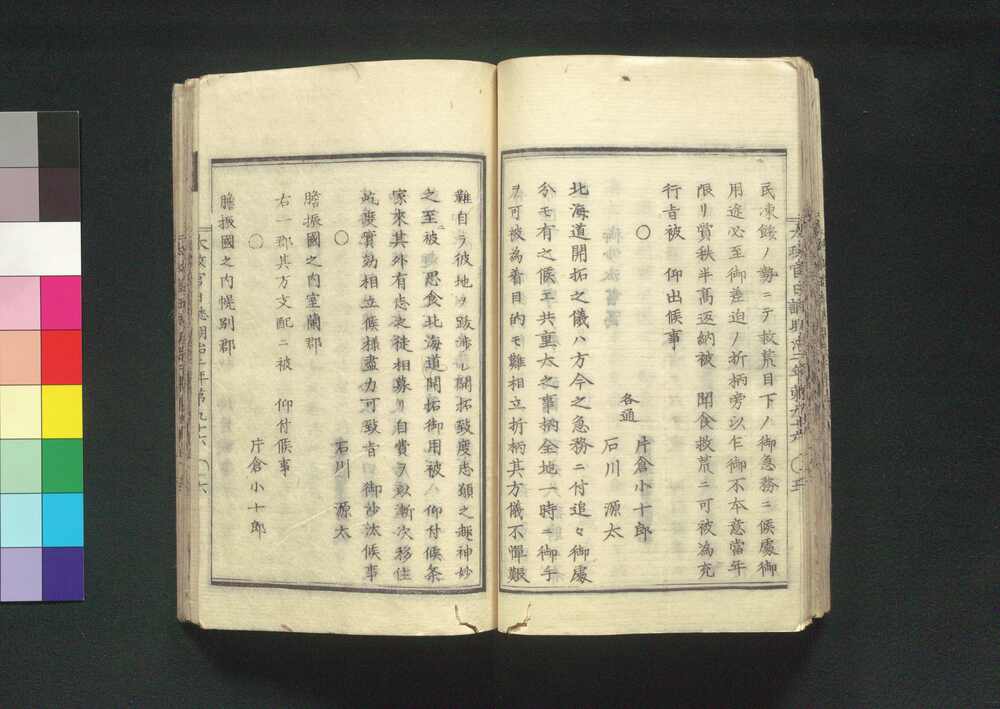 民凍餒ノ勢ニテ救荒目下ノ御急務ニ候處御
用途必至御差迫ノ折柄旁以乍御不本意當年
限リ賞秩半高返納被　聞食救荒ニ可被為充
行旨被　仰出候事
〇　片倉小十郎
各通
石川　源太
北海道開拓之儀ハ方今之急務ニ付追々御處
分モ有之候エ共重大之事柄全地一時ニ御手
ヲ可被為着目的モ難相立折柄其方儀不憚艱
難自ラ彼地ヲ跋渉シ開拓致度志願之趣神妙
之至被　思食北海道開拓御用被　仰付候条
家來其外有志之徒相募リ自費ヲ以漸次移住
屹度實効相立候様盡力可致旨　御沙汰候事
〇　石川　源太
膽振國之内室蘭郡
右一郡其方支配ニ被　仰付候事
〇　片倉小十郎
膽振國之内幌別郡
太政官日誌明治二年第九十六　〇六